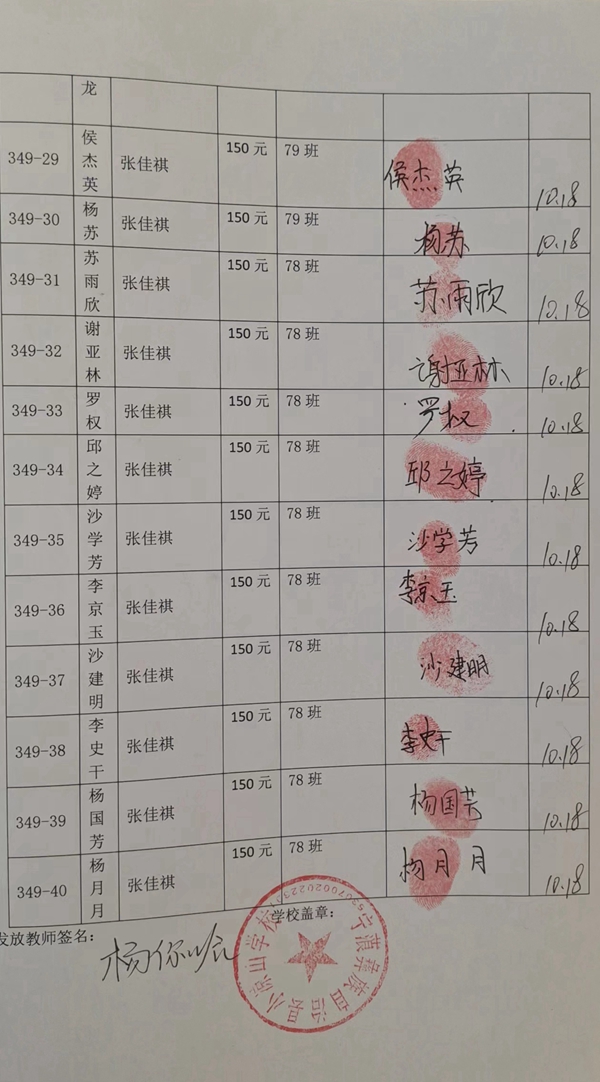 龙
349-29 侯杰英 张佳祺 150元 79班 侯杰英 10.18
349-30 杨苏 张佳祺 150元 79班 杨苏 10.18
349-31 苏雨欣 张佳祺 150元 78班 苏雨欣 10.18
349-32 谢亚林 张佳祺 150元 78班 谢亚林 10.18
349-33 罗权 张佳祺 150元 78班 罗权 10.18
349-34 邱之婷 张佳祺 150元 78班 邱之婷 10.18
349-35 沙学芳 张佳祺 150元 78班 沙学芳 10.18
349-36 李京玉 张佳祺 150元 78班 李京玉 10.18
349-37 沙建明 张佳祺 150元 78班 沙建明 10.18
349-38 李史干 张佳祺 150元 78班 李史干 10.18
349-39 杨国芳 张佳祺 150元 78班 杨国芳 10.18
349-40 杨月月 张佳祺 150元 78班 杨月月 10.18
发放教师签名: 杨 学校盖章:
宁蒗彝族自治县小凉山学校